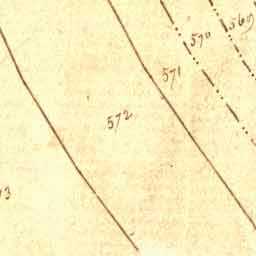 569
570
571
572
3